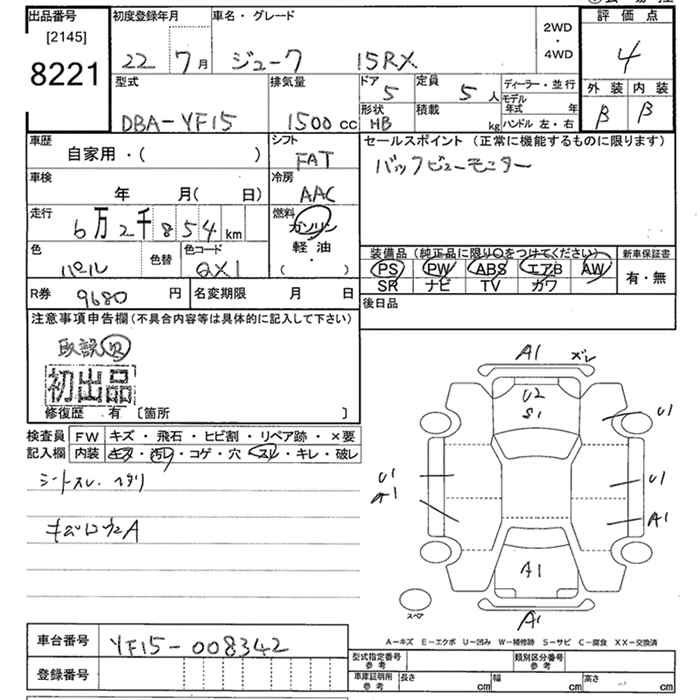 出品番号
[2145]
8221
初度登録年月
22 7月
車名・グレード
ジューク 15RX
2WD
・
4WD
評価点
4
型式
DBA-YF15
排気量
1500cc
ドア
5
定員
5人
形状
HB
積載
kg
ディーラー・並行
モデル年式 年
ハンドル 左・右
外装 内装
β β
車歴
自家用・( )
シフト
FAT
セールスポイント (正常に機能するものに限ります)
バックビューモニター
車検
年 月( 日)
冷房
AAC
走行
6万2千854km
燃料
ガソリン
軽油
( )
色
パール
色替
色コード
QX1
装備品 (純正品に限り〇をつけてください)
PS PW ABS エアB AW
SR ナビ TV カワ
新車保証書
有・無
R券 9680円
名変期限 月 日
後日品
注意事項申告欄 (不具合内容等は具体的に記入して下さい)
取説
初出品
修復歴 有 [箇所 ]
検査員記入欄
FW キズ・飛石・ヒビ割・リペア跡・×要
内装 キズ・汚レ・コゲ・穴・スレ・キレ・破レ
シートスレ・ヘタリ
A1
ズレ
U2
S1
U1
U1
U1
A1
A1
A1
スペア
A1
A-キズ E-エクボ U-凹み W-補修跡 S-サビ C-腐食 XX-交換済
車台番号 YF15-008342
登録番号
型式指定番号
参考
類別区分番号
参考
車庫証明用
参考
長さ cm
幅 cm
高さ cm